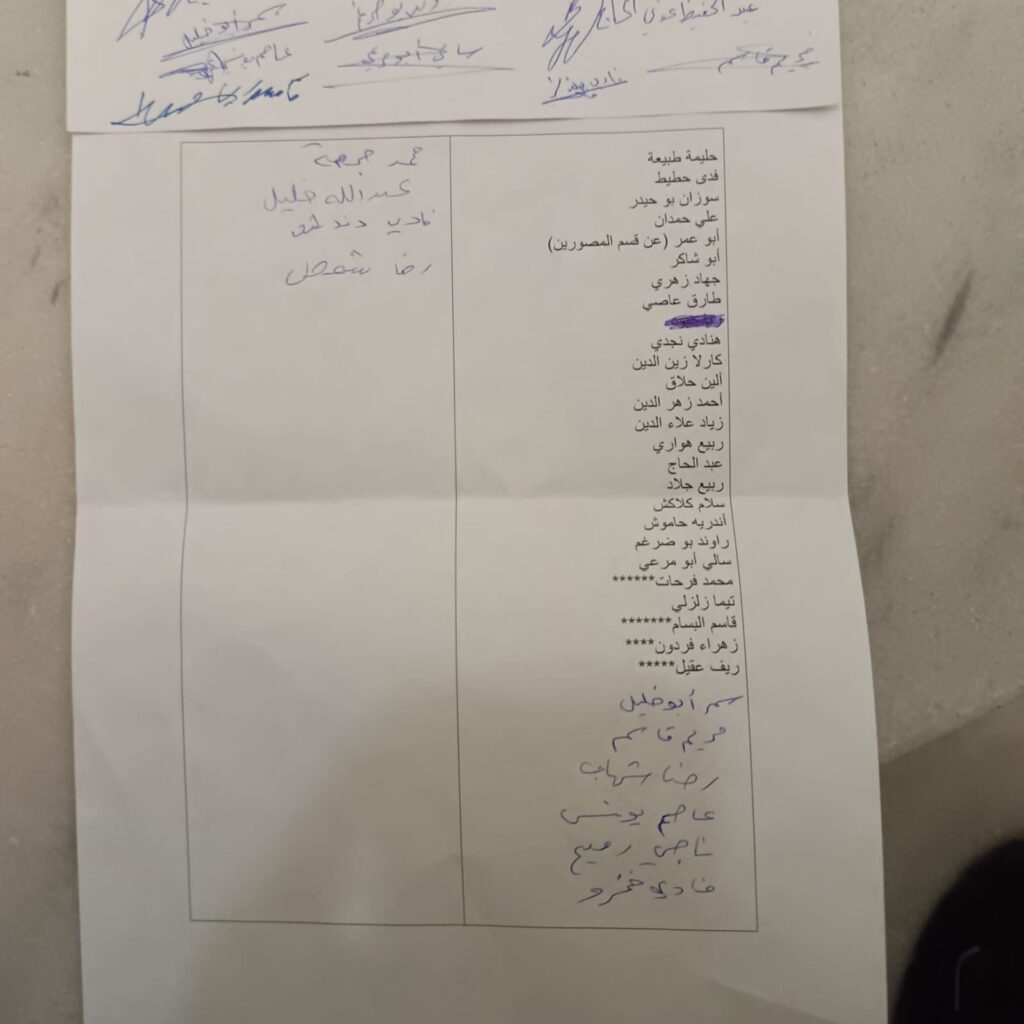 سمر أبو خليل
عبد الحفيظ
سالي أبو مرعي
مريم قاسم
عاصم
حليمة طبيعة
فدى حطيط
سوزان بو حيدر
علي حمدان
أبو عمر (عن قسم المصورين)
أبو شاكر
جهاد زهري
طارق عاصي
هنادي نجدي
كارلا زين الدين
ألين حلاق
أحمد زهر الدين
زياد علاء الدين
ربيع هواري
عبد الحاج
ربيع جلاد
سلام كلاكش
أندريه حاموش
راوند بو ضرغم
سالي أبو مرعي
محمد فرحات******
تيما زلزلي
قاسم البسام*******
زهراء فردون****
ريف عقيل*****
سمر أبو خليل
مريم قاسم
رضا شهاب
عاصم يونس
ناجي
فادي
جمعة
عبدالله خليل
نادي
رضا